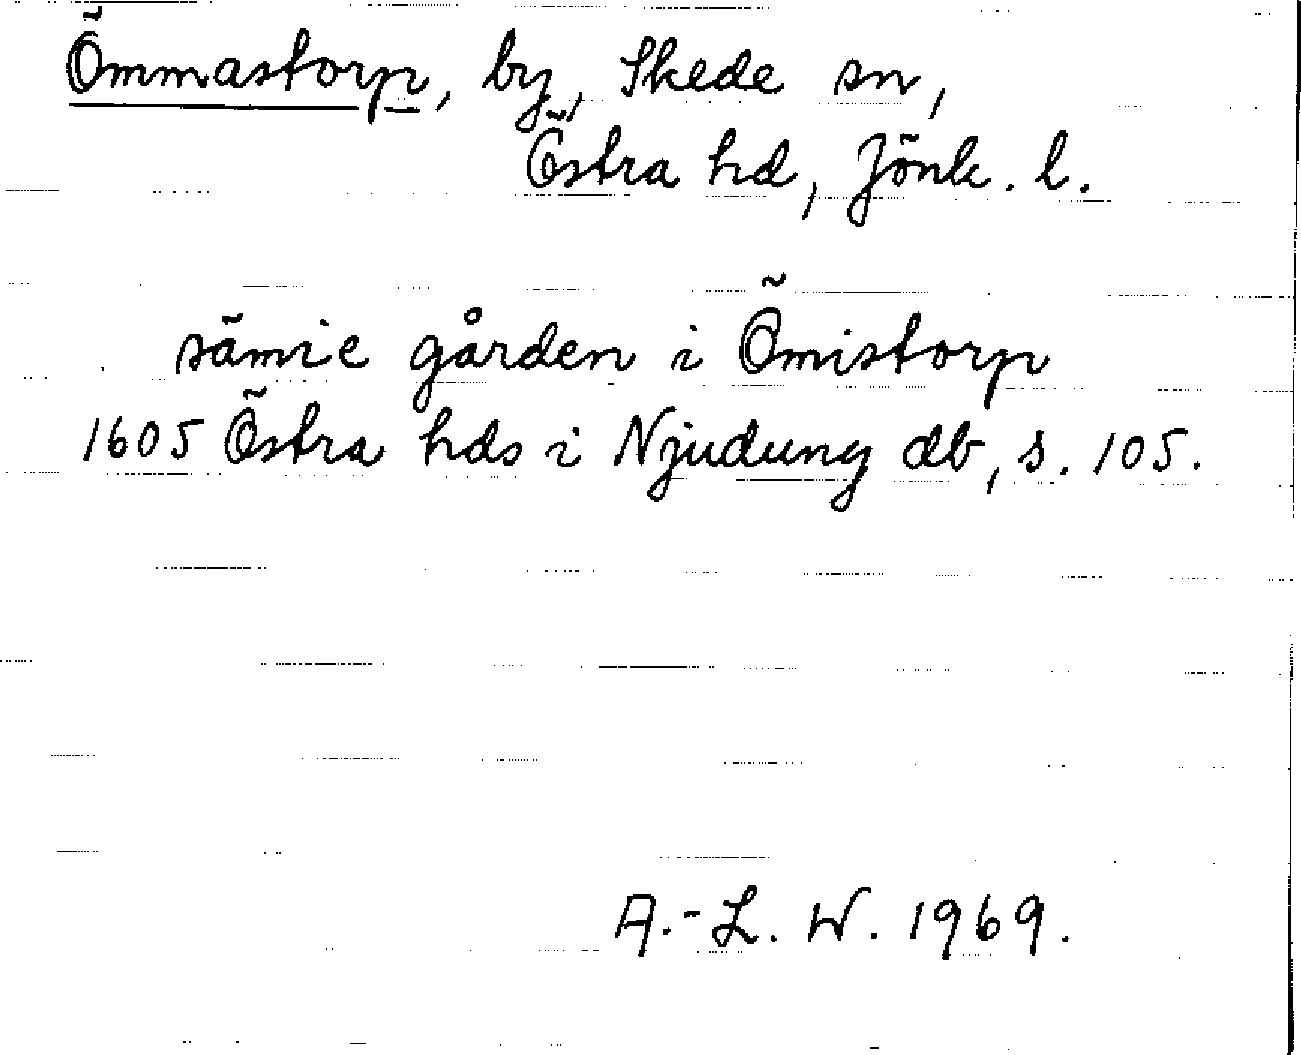 Ömmastorp, by, Skede sn,
Östra hd, Jönk. l.
sämie gården i Ömistorp
1605 Östra hds i Njudung db, s. 105.
A.-L. W. 1969.